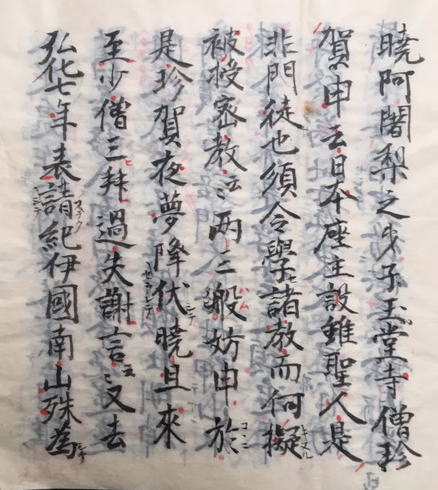 曉阿闍梨之弟子玉堂寺僧珍
賀申云日本座主設雖聖人是
非門徒也須令學諸教而何擬
被授密教云々両三般妨申於
是珍賀夜夢降伏曉旦來
至少僧三拜過失謝言云々又去
弘仁七年表請紀伊國南山殊為